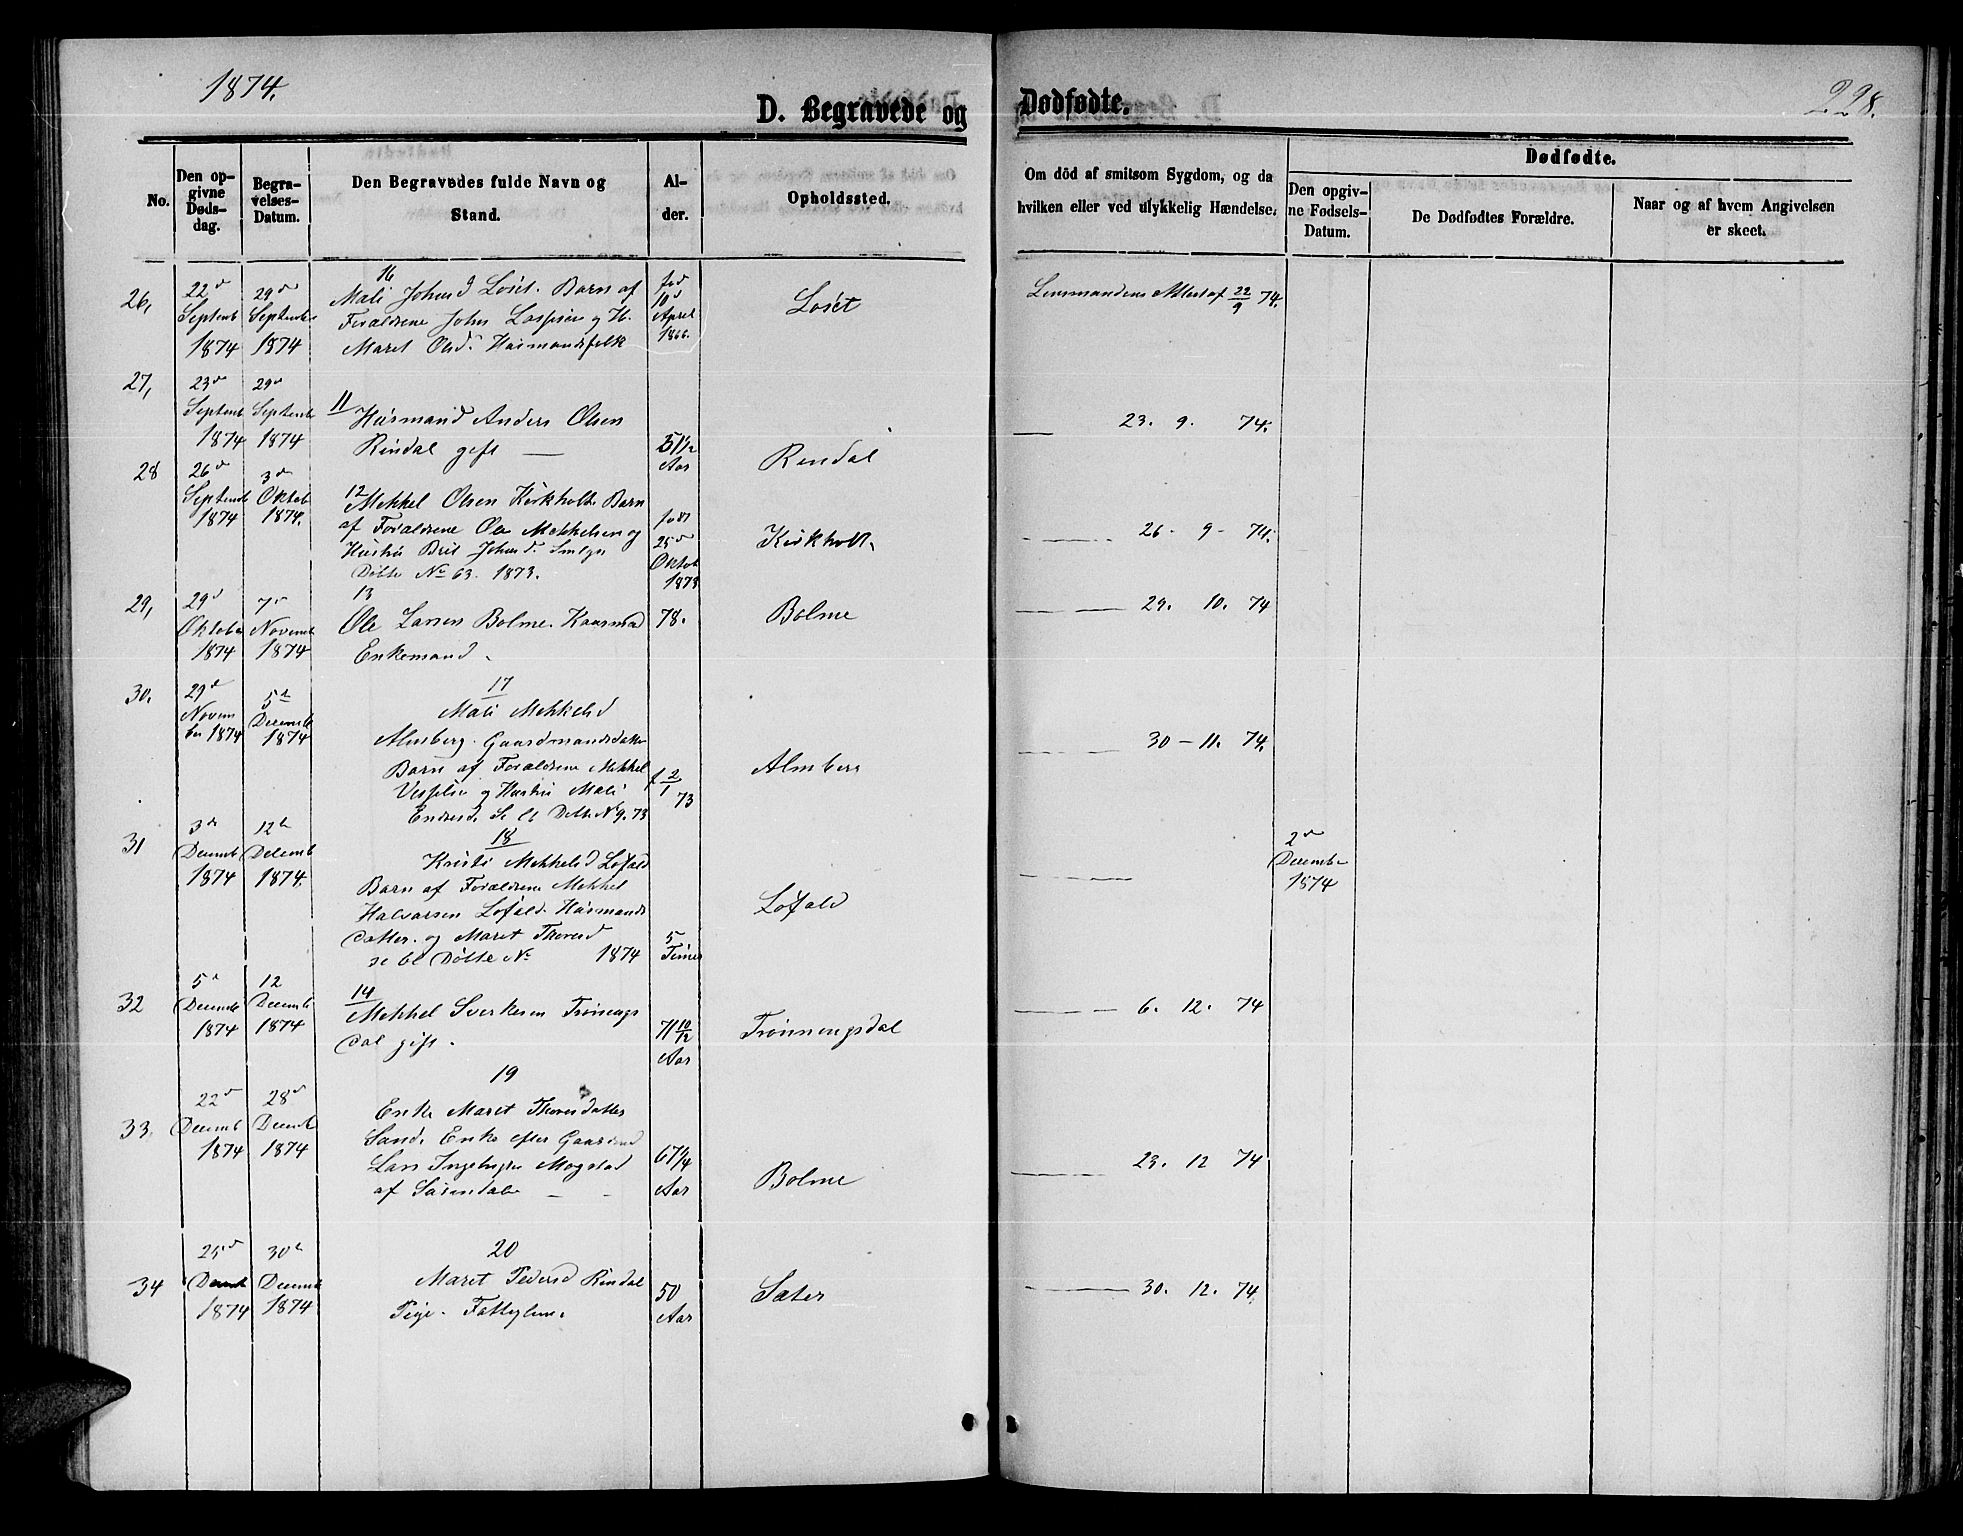 1874.
228.
D. Begravede og
Dødfødte.
No.
Den op-
givne
Døds-
dag.
Begra-
velses-
Datum.
Den Begravedes fulde Navn og
Stand.
Al-
der.
Opholdssted.
Om död af smitsom Sygdom, og da
hvilken eller ved ulykkelig Hændelse.
Dødfødte.
Den opgiv-
ne Fødsels-
Datum.
De Dødfødtes Forældre.
Naar og af hvem Angivelsen
er skeet.
26,
22d
Septemb
1874
29d
Septembe
1874
16
Mali Johnsd Löset. Barn af
Forældrene John og H.
Maret Olsd. Húsmandsfolk
fød
10d
April
1866.
Löset
Lensmandens Attest af 22/9 74.
27,
23d
Septemb
1874
29d
Septemb
1874
11
Húsmand Anders Olsen
Rindal gift —
51½
Aar
Rindal
— 23. 9. 74.
28
26d
Septemb
1874
3d
Oktob
1874.
12
Mekkel Olsen Kirkholt. Barn
af Forældrene Ole Mekkelsen og
Hustrú Brit Johnsd.
Døbte No 63. 1873.
født
25d
Oktob
1873
Kirkholt.
— 26 - 9 - 74.
29,
29d
Oktobe
1874
7d
Novemb
1874
13
Ole Larsen Bolme. Kaarmd
Enkemand.
78.
Bolme
— 29. 10. 74
30.
29d
Novem
ber 1874
5d
Decemb
1874
17
Mali Mekkelsd
Almberg. Gaardmandsdatter
Barn af Forældrene Mekkel
og Hustrú Mali
Endresd. Se bl Døbte No 9. 73
f 2/1 73
Almberg
— 30 - 11. 74.
31
3d
Decemb
1874
12d
Decemb
1874.
18
Kristi Mekkelsd Löfald
Barn af Forældrene Mekkel
Halvorsen Löfald. Húsmands
datter. og Maret Thoresd
se bl Döbte No 1874
5
Timer
Löfald
—
2d
Decembe
1874
32
5d
Decemb
1874
12
Decemb
1874
14
Mekkel Sverkesen Trönnings
dal gift.
71 10/12
Aar
Trönnengsdal
— 6. 12. 74
33.
22d
Decemb
1874
28d
Decemb
1874
19
Enke Maret Thoresdatter
Sande Enke efter Gaardmd
Lars Ingebrigtse Mogstad
af Surendalen —
67¼
Aar
Bolme
— 23. 12 74
34
25d
Decemb
1874
30d
Decemb
1874
20
Maret Pedersd Rindal
Pige. Fattiglem.
50
Aar
Sæter
— 30. 12. 74